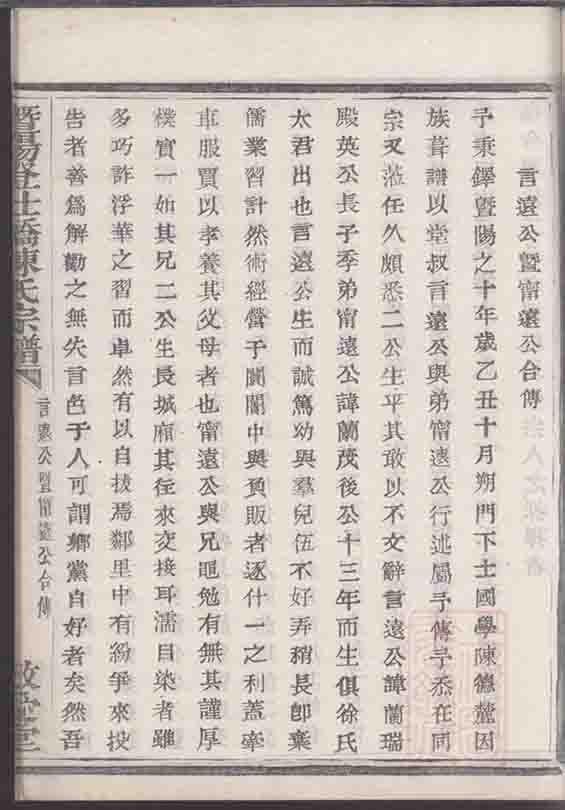 言遠公暨甯遠公合傳
予秉鐸暨陽之十年歲乙丑十月朔門下士國學陳德麓因
族葺譜以堂叔言遠公與弟甯遠公行述屬予傳予忝在同
宗又蒞任久頗悉二公生平其敢以不文辭言遠公諱蘭瑞
殿英公長子季弟甯遠公諱蘭茂後公十三年而生俱徐氏
太君出也言遠公生而誠篤幼與羣兒伍不好弄稍長卽棄
儒業習計然術經營于闤闠中與負販者逐什一之利蓋牽
車服賈以孝養其父母者也甯遠公與兄黽勉有無其謹厚
樸實一如其兄二公生長城廂其往來交接耳濡目染者雖
多巧詐浮華之習而卓然有以自拔焉鄰里中有紛爭來投
告者善爲解勸之無失言色于人可謂鄉黨自好者矣然吾
暨陽登仕橋陳氏宗譜
言遠公暨甯遠公合傳
敘堂